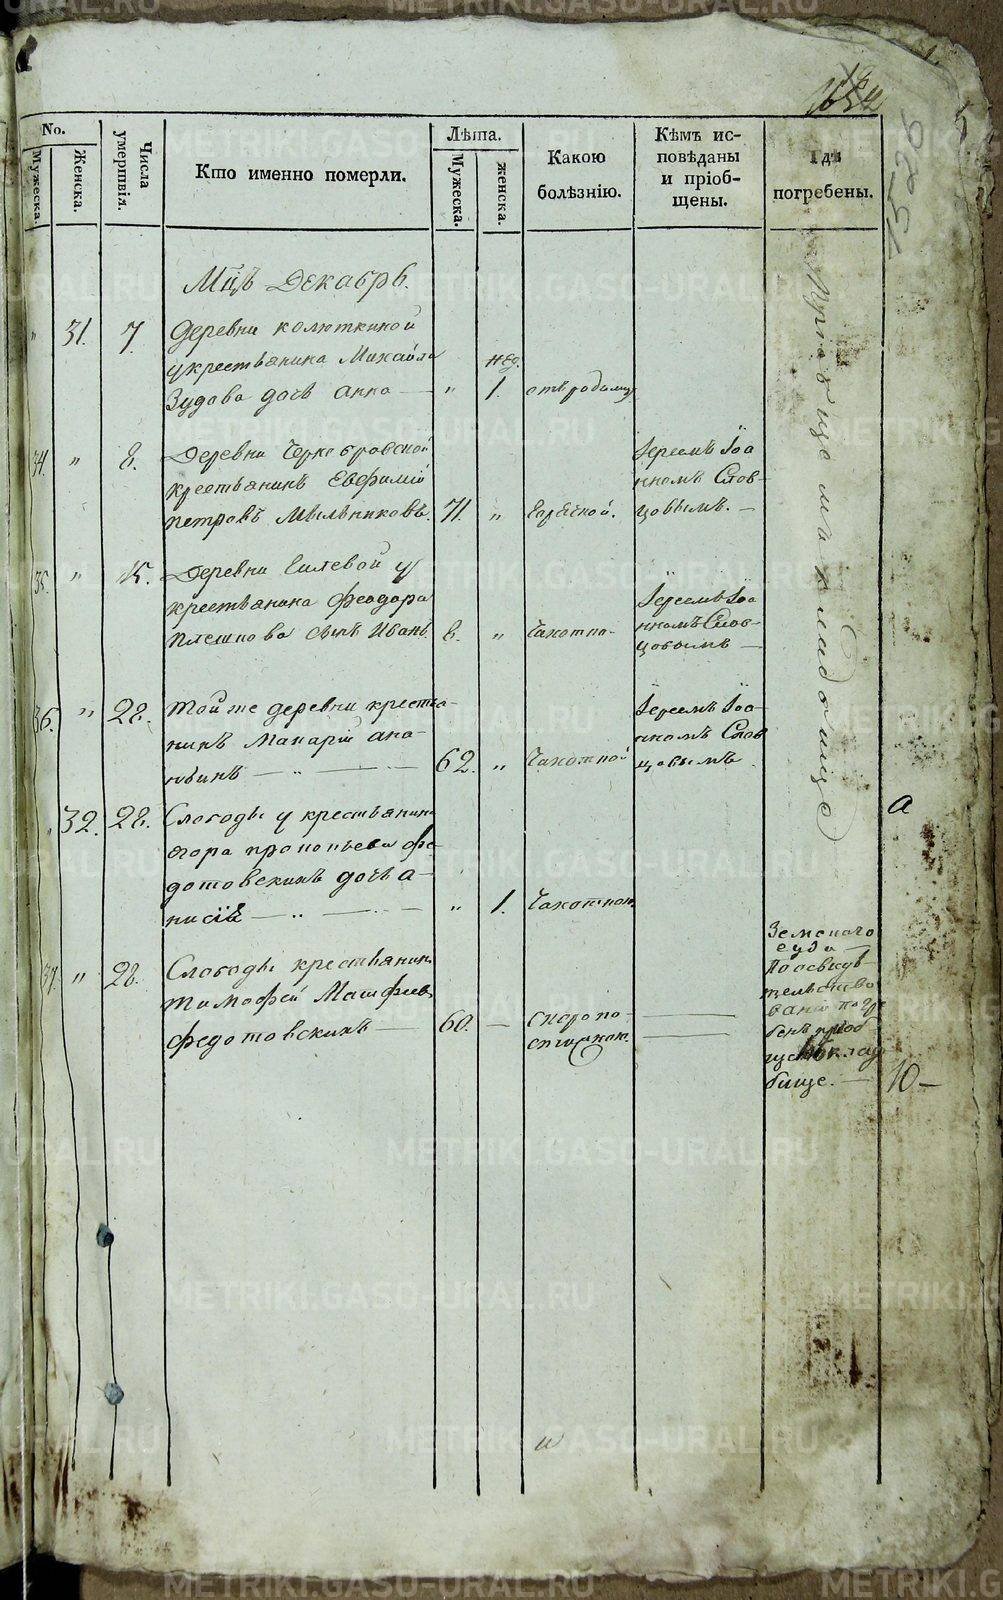 15206
No.
Мужеска.
Женска.
Числа умертвія.
Кто именно померли.
Лѣта.
Мужеска.
женска.
Какою
болѣзнію.
Кѣмъ ис-
повѣданы
и пріоб-
щены.
Гдѣ
погребены.
Мцъ Декабрь.
" 31. 7. Деревни колюткиной
укрестьянина Михайла
нед.
Зудова дочь анна — " 1. отъ родимцу
34. " 8. Деревни
крестьянинъ Евфимій
петровъ Мыльниковъ. 71. "
Іереемъ Іоа
нномъ Слов-
цовымъ. —
35. " 15. Деревни Гилевой у
крестьянина Феодора
плешкова сынъ Иванъ 8. " Чахотно-
Іереемъ Іоа
нномъ Слов-
цовымъ —
36. " 28. Той же деревни крестья-
нинъ Макарій ана-
ньинъ — " — 62. " Чахотной
Іереемъ Іоа-
нномъ Слов
цовымъ
" 32. 28. Слободы у крестьянина
егора прокопьева фе-
дотовскихъ дочь а-
нисія — " — " 1. Чахоткою.
37. " 28. Слободы крестьянинъ
Тимофей Матфеев
федотовскихъ — 60. — Скоропо-
стижною.
При
на кладбище
Земского
суда —
По освидѣ
тельство
ваніи погре
бенъ приоб
бище. —
а
10 —
METRIKI.GASO-URAL.RU